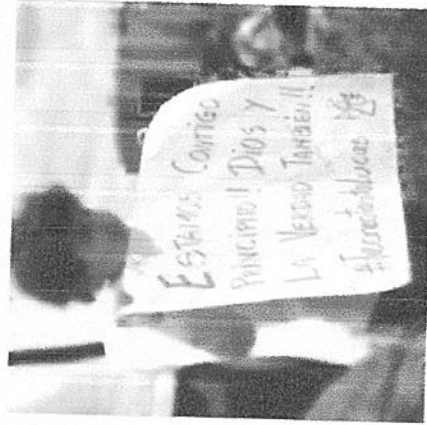 ESTAMOS CONTIGO
PRINCIPITO! DIOS Y
LA VERDAD TAMBIÉN!!